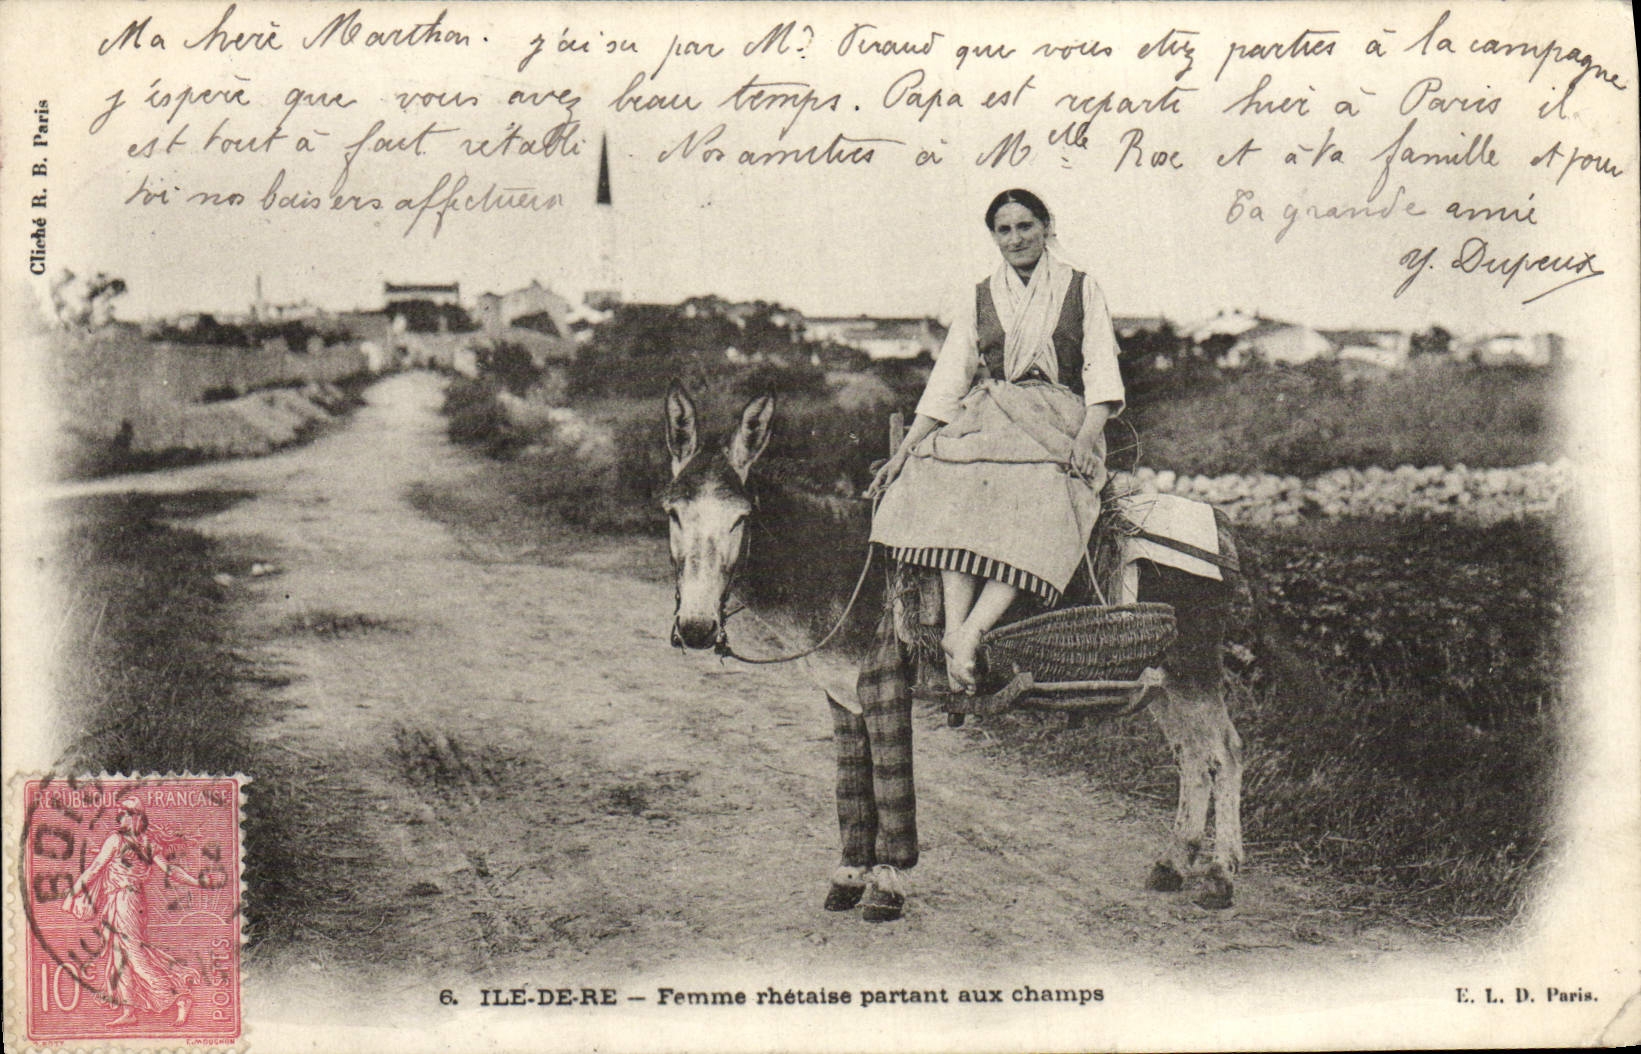 Ma chère Marthon. j'ai su par M? Viraud que vous etiez parties à la campagne
j'éspère que vous avez beau temps. Papa est reparti hier à Paris il
est tout à fait rétabli. Nos amitiés à Melle Rose et à ta famille et pour
toi nos baisers affectueux
Ta grande amie
Y. Dupeux
Cliché R. B. Paris
REPUBLIQUE FRANÇAISE
10c
POSTES
O. ROTY
E. MOUCHON
6. ILE-DE-RE — Femme rhétaise partant aux champs
E. L. D. Paris.